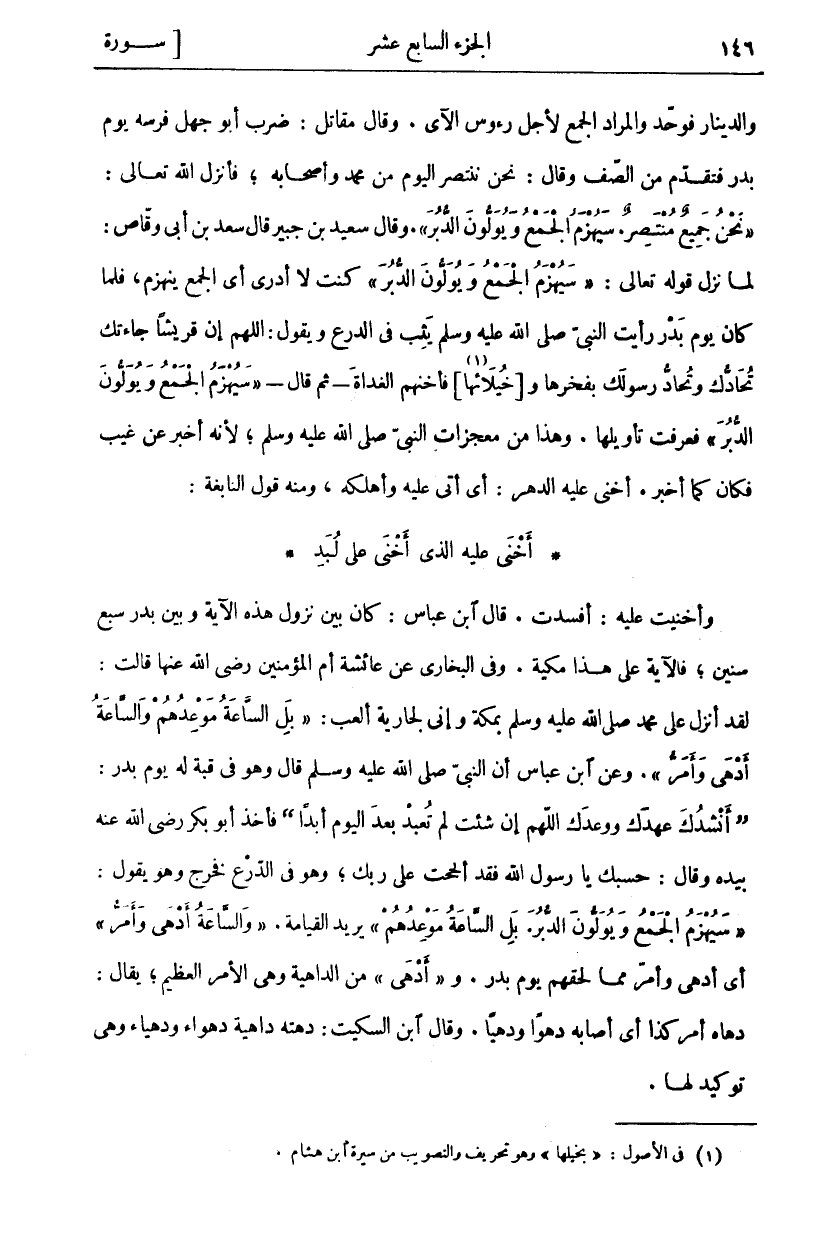 ١٤٦ الجزء السابع عشر [ ســورة
والدينار فوحّد والمراد الجمع لأجل رءوس الآى . وقال مقاتل : ضرب أبو جهل فرسه يوم
بدر فتقدّم من الصّف وقال : نحن ننتصر اليوم من محمد وأصحابه ؛ فأنزل الله تعالى :
« نَحْنُ جَمِيعٌ مُنْتَصِرٌ . سَيُهْزَمُ الْجَمْعُ وَيُوَلُّونَ الدُّبُرَ » . وقال سعيد بن جبير قال سعد بن أبى وقّاص :
لمـا نزل قوله تعالى : « سَيُهْزَمُ الْجَمْعُ وَيُوَلُّونَ الدُّبُرَ » كنت لا أدرى أى الجمع ينهزم ، فلما
كان يوم بَدْر رأيت النبىّ صلى الله عليه وسلم يَثِب فى الدرع ويقول : اللهم إن قريشًا جاءتك
تُحَادُّك وتُحادُّ رسولَك بفخرها و [خُيَلائها] (١) فأخنهم الغداةَ ــ ثم قال ــ « سَيُهْزَمُ الْجَمْعُ وَيُوَلُّونَ
الدُّبُرَ » فعرفت تأويلها . وهذا من معجزات النبىّ صلى الله عليه وسلم ؛ لأنه أخبر عن غيب
فكان كما أخبر . أخنى عليه الدهر : أى أتى عليه وأهلكه ، ومنه قول النابغة :
* أَخْنَى عليه الذى أَخْنَى على لُبَدِ *
وأخنيت عليه : أفسدت . قال آبن عباس : كان بين نزول هذه الآية وبين بدر سبع
سنين ؛ فالآية على هـذا مكية . وفى البخارى عن عائشة أم المؤمنين رضى الله عنها قالت :
لقد أنزل على محمد صلى الله عليه وسلم بمكة وإنى لجارية ألعب : « بَلِ السَّاعَةُ مَوْعِدُهُمْ وَالسَّاعَةُ
أَدْهَى وَأَمَرُّ » . وعن آبن عباس أن النبىّ صلى الله عليه وسـلم قال وهو فى قبة له يوم بدر :
” أَنْشُدُكَ عهدَك ووعدَك اللّهم إن شئت لم تُعبدْ بعدَ اليوم أبدًا “ فأخذ أبو بكر رضى الله عنه
بيده وقال : حسبك يا رسول الله فقد ألححت على ربك ؛ وهو فى الدّرْع فخرج وهو يقول :
« سَيُهْزَمُ الْجَمْعُ وَيُوَلُّونَ الدُّبُرَ . بَلِ السَّاعَةُ مَوْعِدُهُمْ » يريد القيامة . « وَالسَّاعَةُ أَدْهَى وَأَمَرُّ »
أى أدهى وأمرّ ممـا لحقهم يوم بدر . و « أَدْهَى » من الداهية وهى الأمر العظيم ؛ يقال :
دهاه أمر كذا أى أصابه دهوًا ودهيًا . وقال آبن السكيت : دهته داهية دهواء ودهياء وهى
توكيد لهـا .
(١) فى الأصول : « بخيلها » وهو تحريف والتصويب من سيرة آبن هشام .